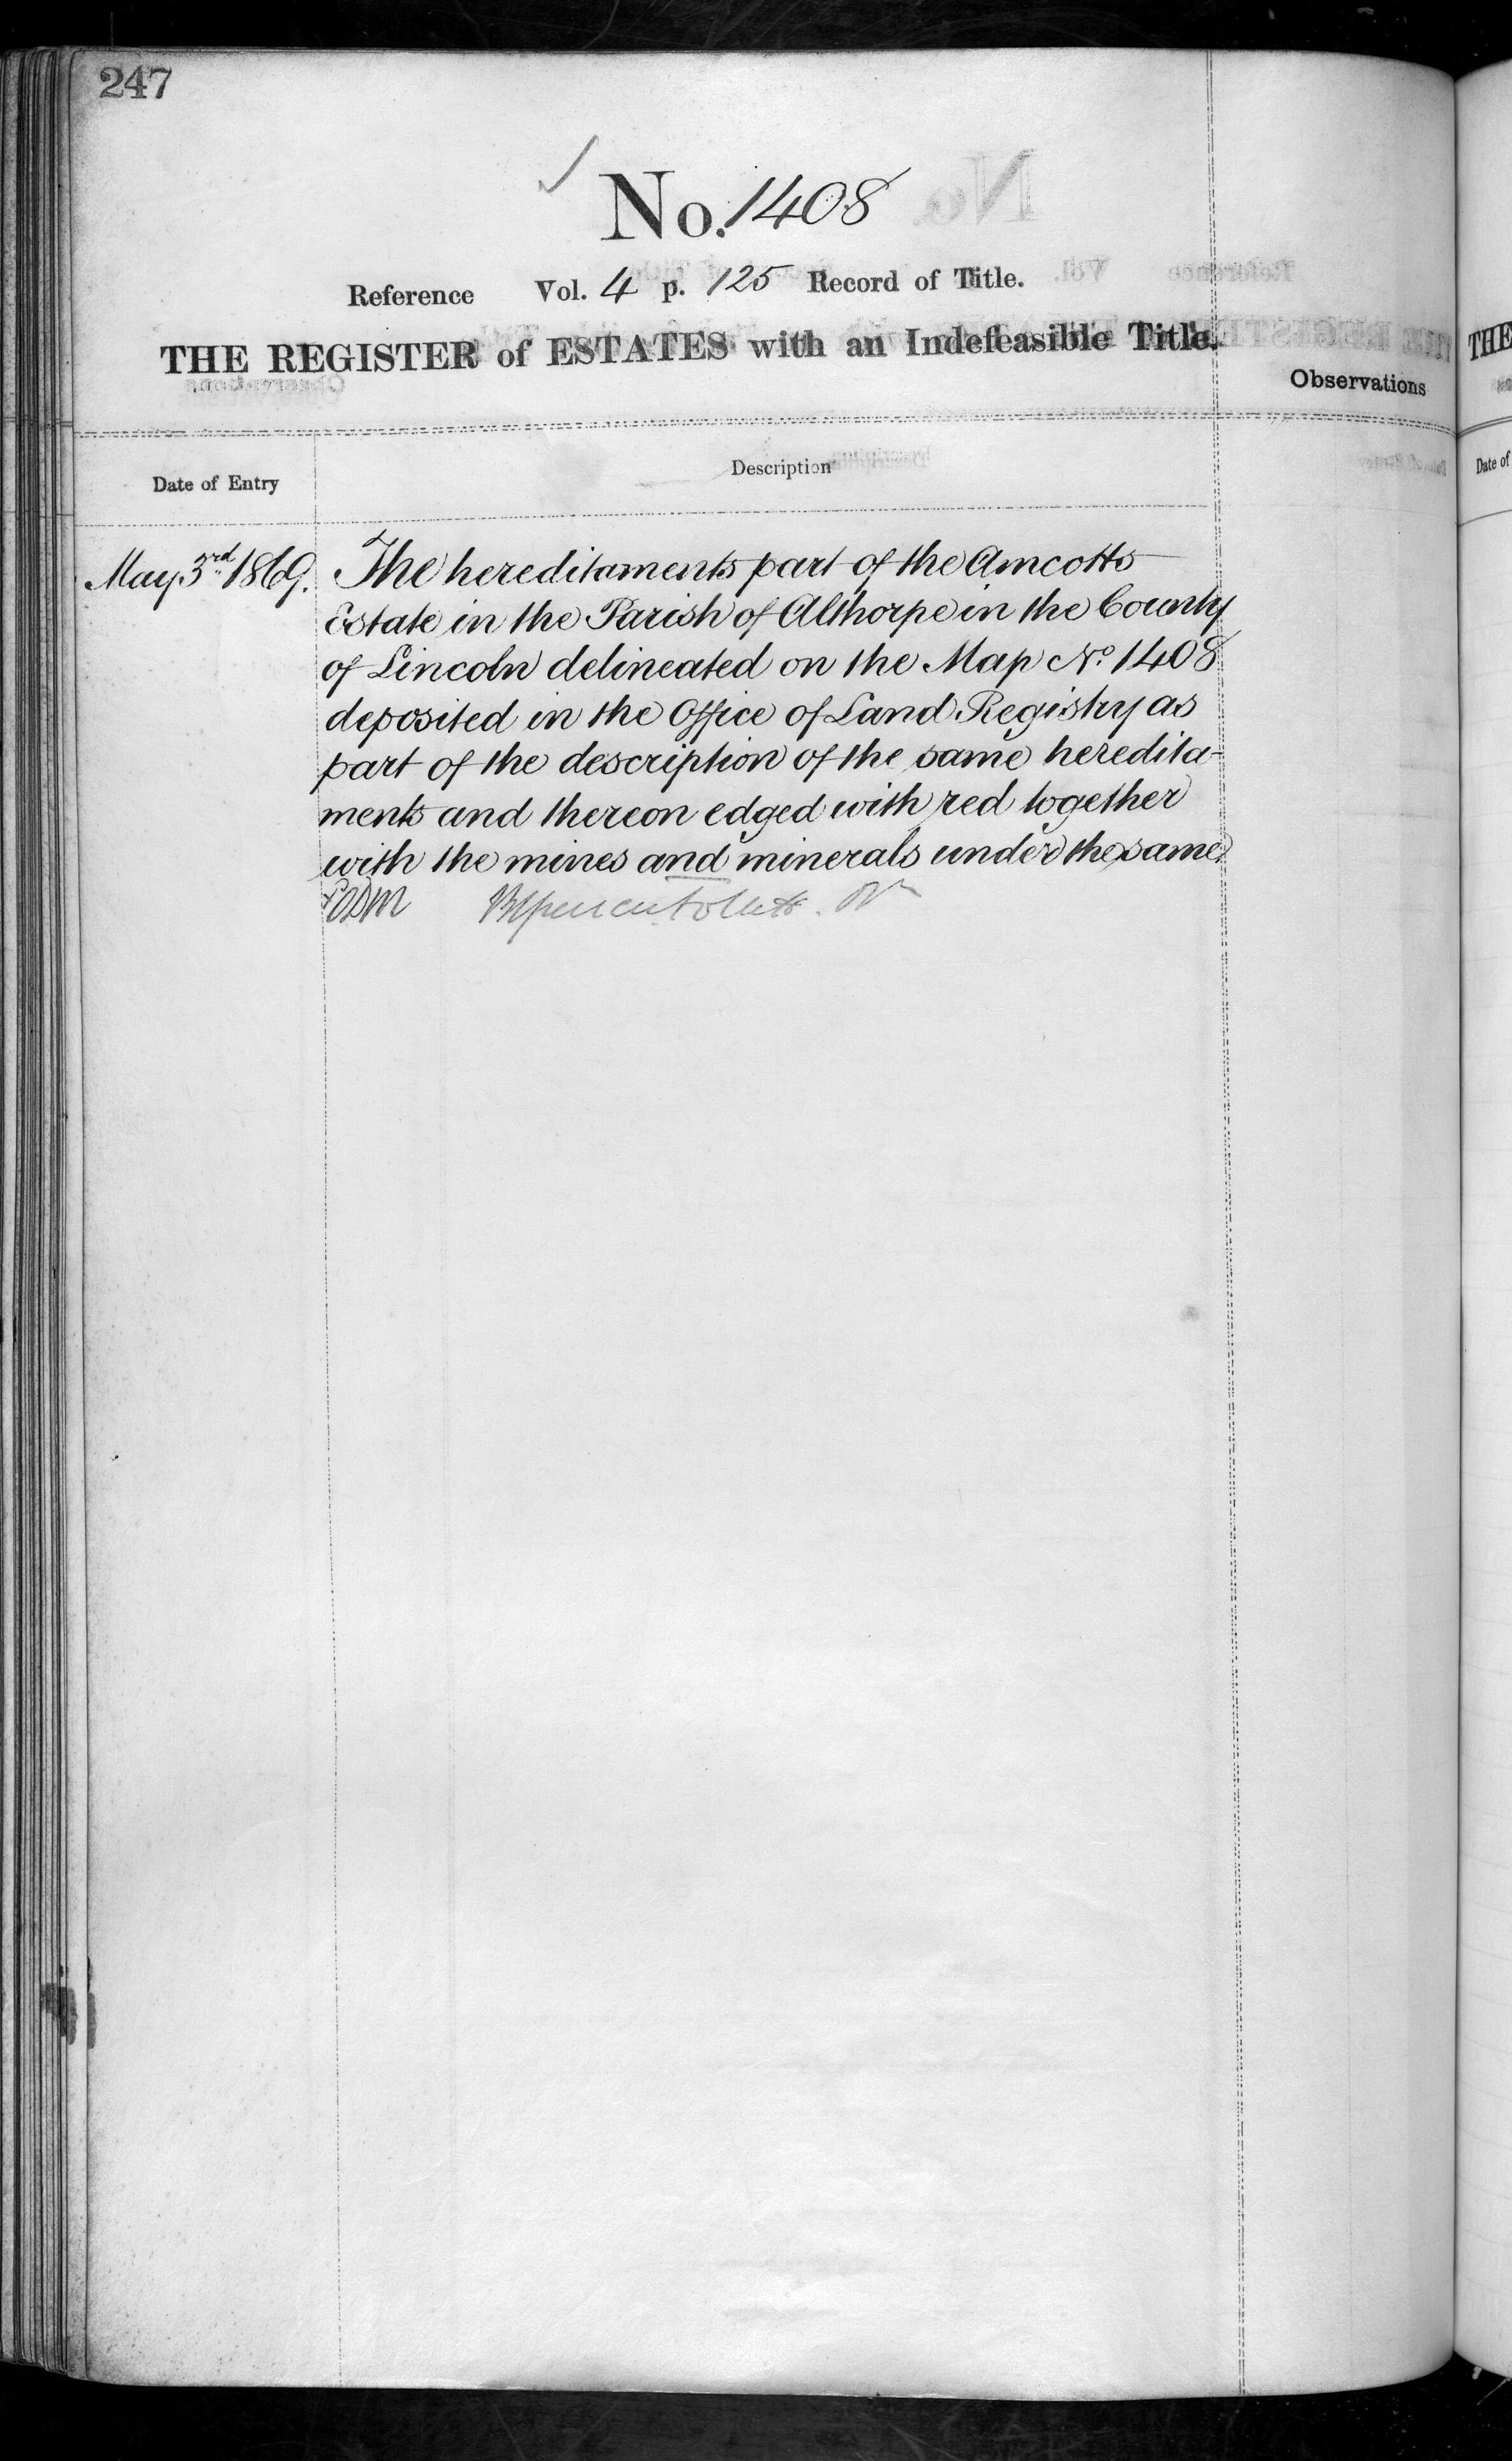 247
No. 1408
Reference Vol. 4 p. 125 Record of Title.
THE REGISTER of ESTATES with an Indefeasible Title.
Observations
Date of Entry
Description
May 3rd 1869. The hereditaments part of the Amcotts
Estate in the Parish of Althorpe in the County
of Lincoln delineated on the Map No. 1408
deposited in the Office of Land Registry as
part of the description of the same heredita-
ments and thereon edged with red together
with the mines and minerals under the same.
THE
Date of